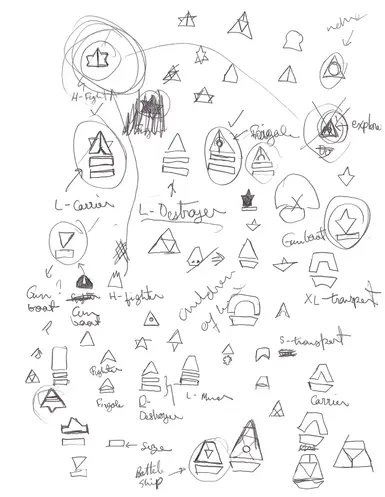 H-Fighter
explorer
Frigate
L-Carrier
L-Destroyer
Gunboat
Gun
boat
?
Gun
boat
H-fighter
children
of
XL-transport
S-transport
Fighter
Frigate
D-
Destroyer
L-Miner
Carrier
Size
Battle
ship